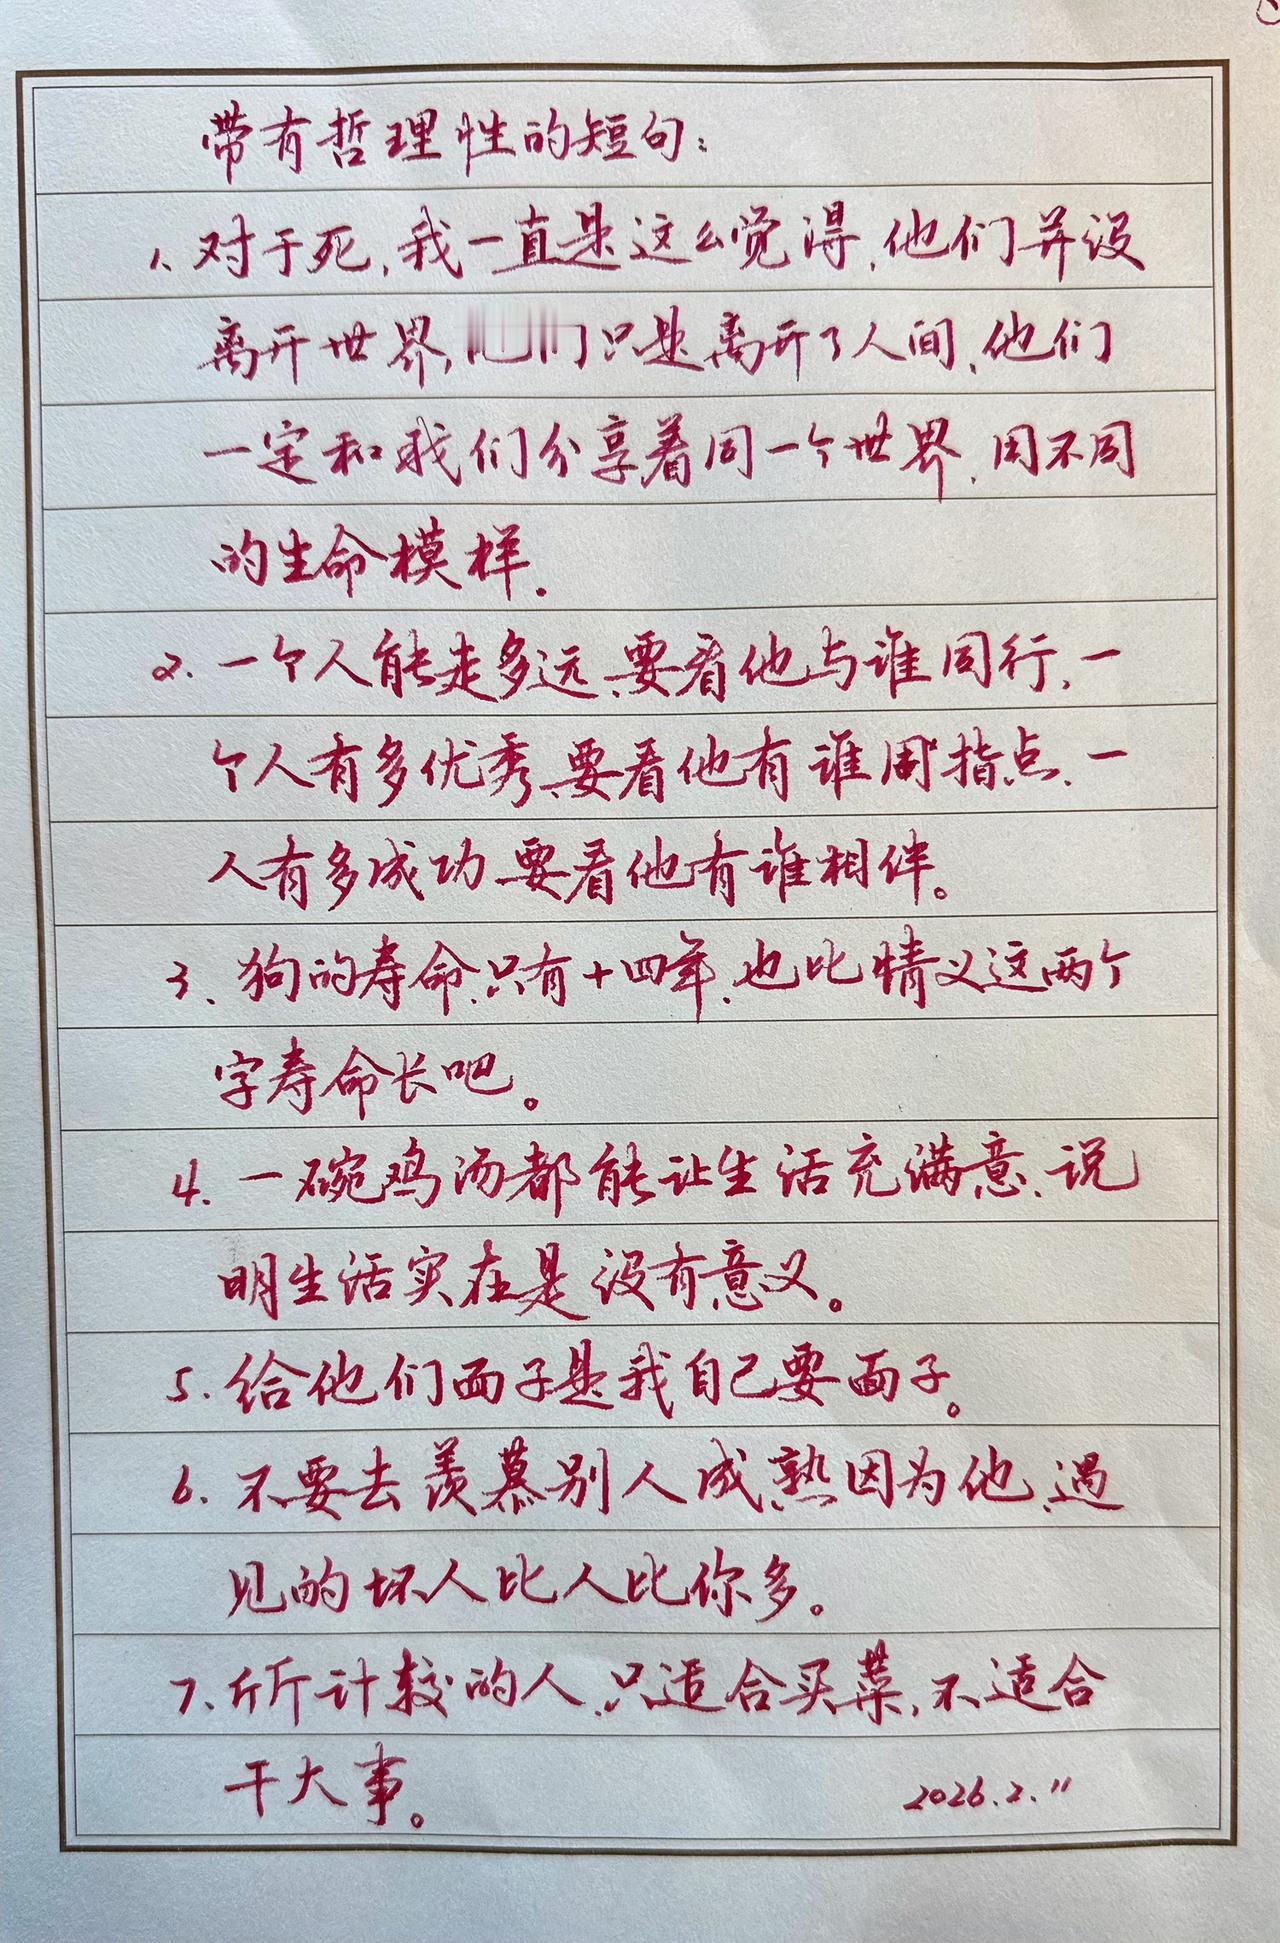 带有哲理性的短句:
1、对于死,我一直是这么觉得,他们并没
离开世界,他们只是离开了人间,他们
一定和我们分享着同一个世界,用不同
的生命模样.
2.一个人能走多远,要看他与谁同行,一
个人有多优秀,要看他有谁周指点,一
人有多成功要看他有谁相伴。
3、狗的寿命,只有十四年,也比情义这两个
字寿命长吧。
4.一碗鸡汤都能让生活充满意,说
明生活实在是没有意义。
5.给他们面子是我自己要面子。
6.不要去羡慕别人成熟因为他,遇
见的坏人比人比你多。
7、斤斤计较的人,只适合买菜,不适合
干大事。
2026.2.11